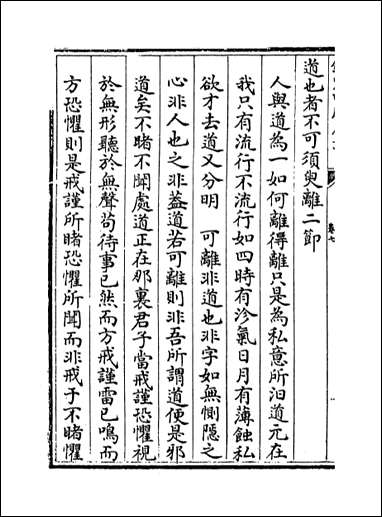 卷七
道也者不可須臾離二節
人與道為一如何離得離只是為私意所汩道元在
我只有流行不流行如四時有沴氣日月有薄蝕私
欲才去道又分明　可離非道也非字如無惻隠之
心非人也之非葢道若可離則非吾所謂道便是邪
道矣不睹不聞處道正在那裏君子當戒謹恐懼視
於無形聽於無聲茍待事已然而方戒謹雷已鳴而
方恐懼則是戒謹所睹恐懼所聞而非戒于不睹懼